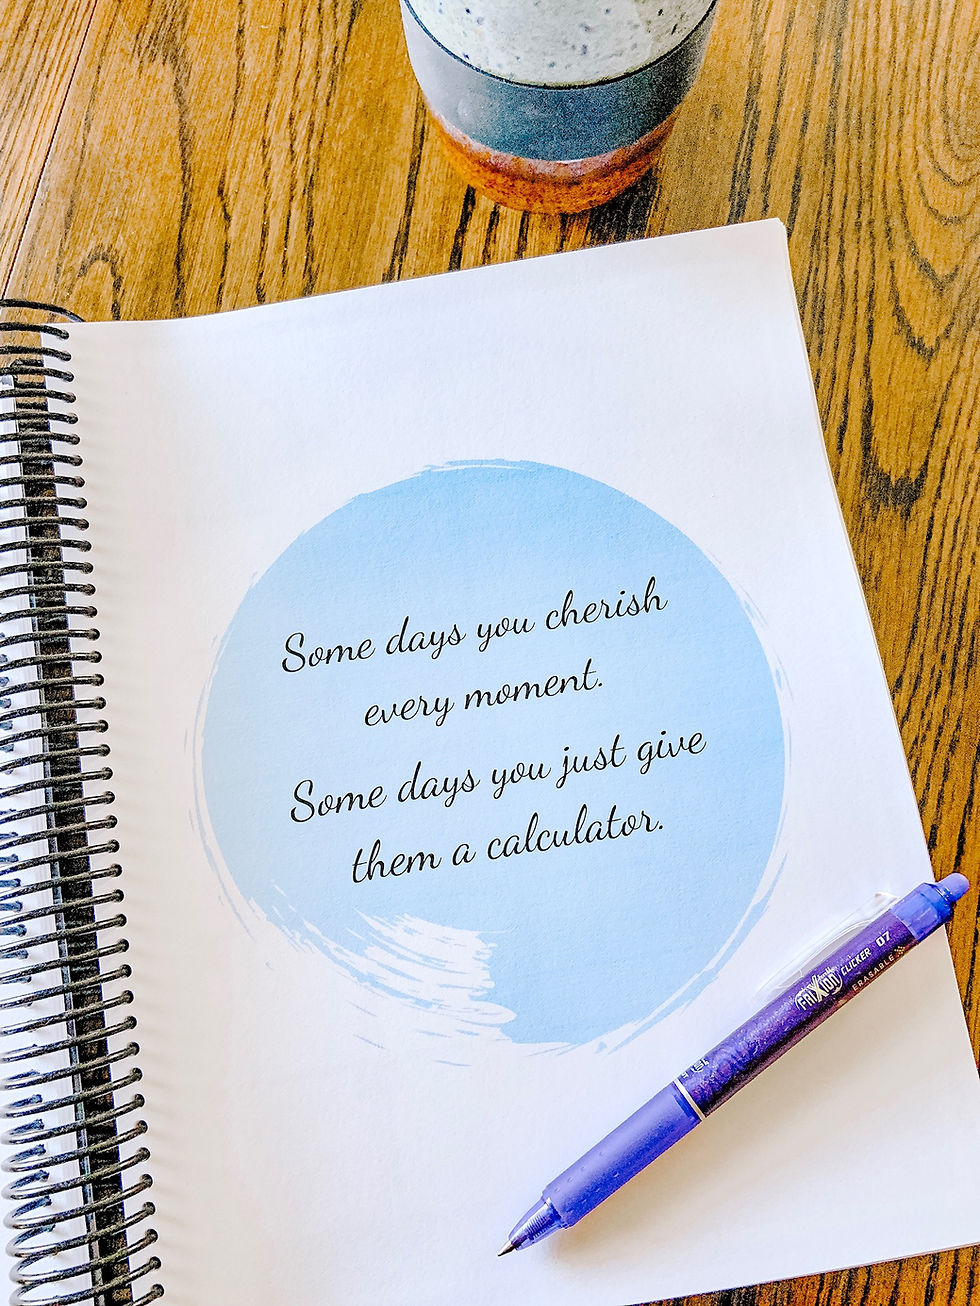 Some days you cherish
every moment.
Some days you just give
them a calculator.
FriXion CLICKER 07
ERASABLE